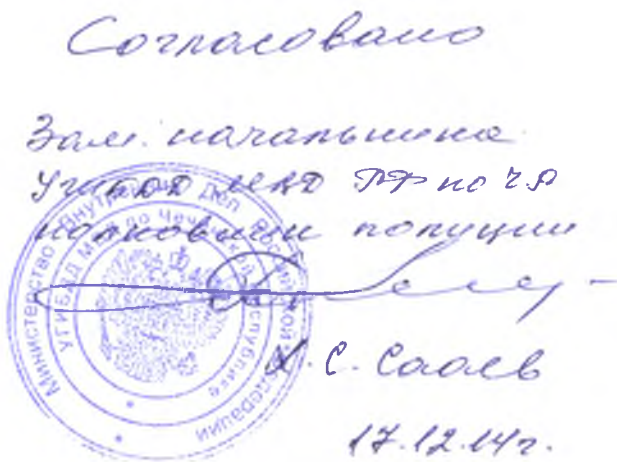 Согласовано
Зам. начальника
УГИБДД МВД РФ по ЧР
полковник полиции
Х. С. Сааев
17.12.14г.
Министерство Внутренних Дел Российской Федерации
УГИБДД МВД по Чеченской Республике